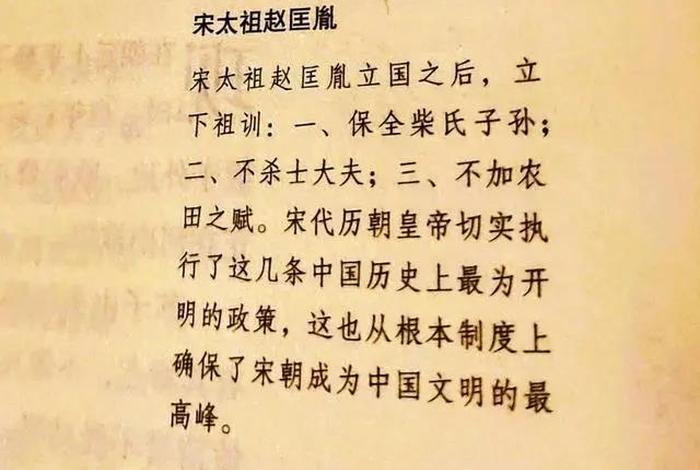 宋太祖赵匡胤
宋太祖赵匡胤立国之后，立
下祖训：一、保全柴氏子孙；
二、不杀士大夫；三、不加农
田之赋。宋代历朝皇帝切实执
行了这几条中国历史上最为开
明的政策，这也从根本制度上
确保了宋朝成为中国文明的最
高峰。